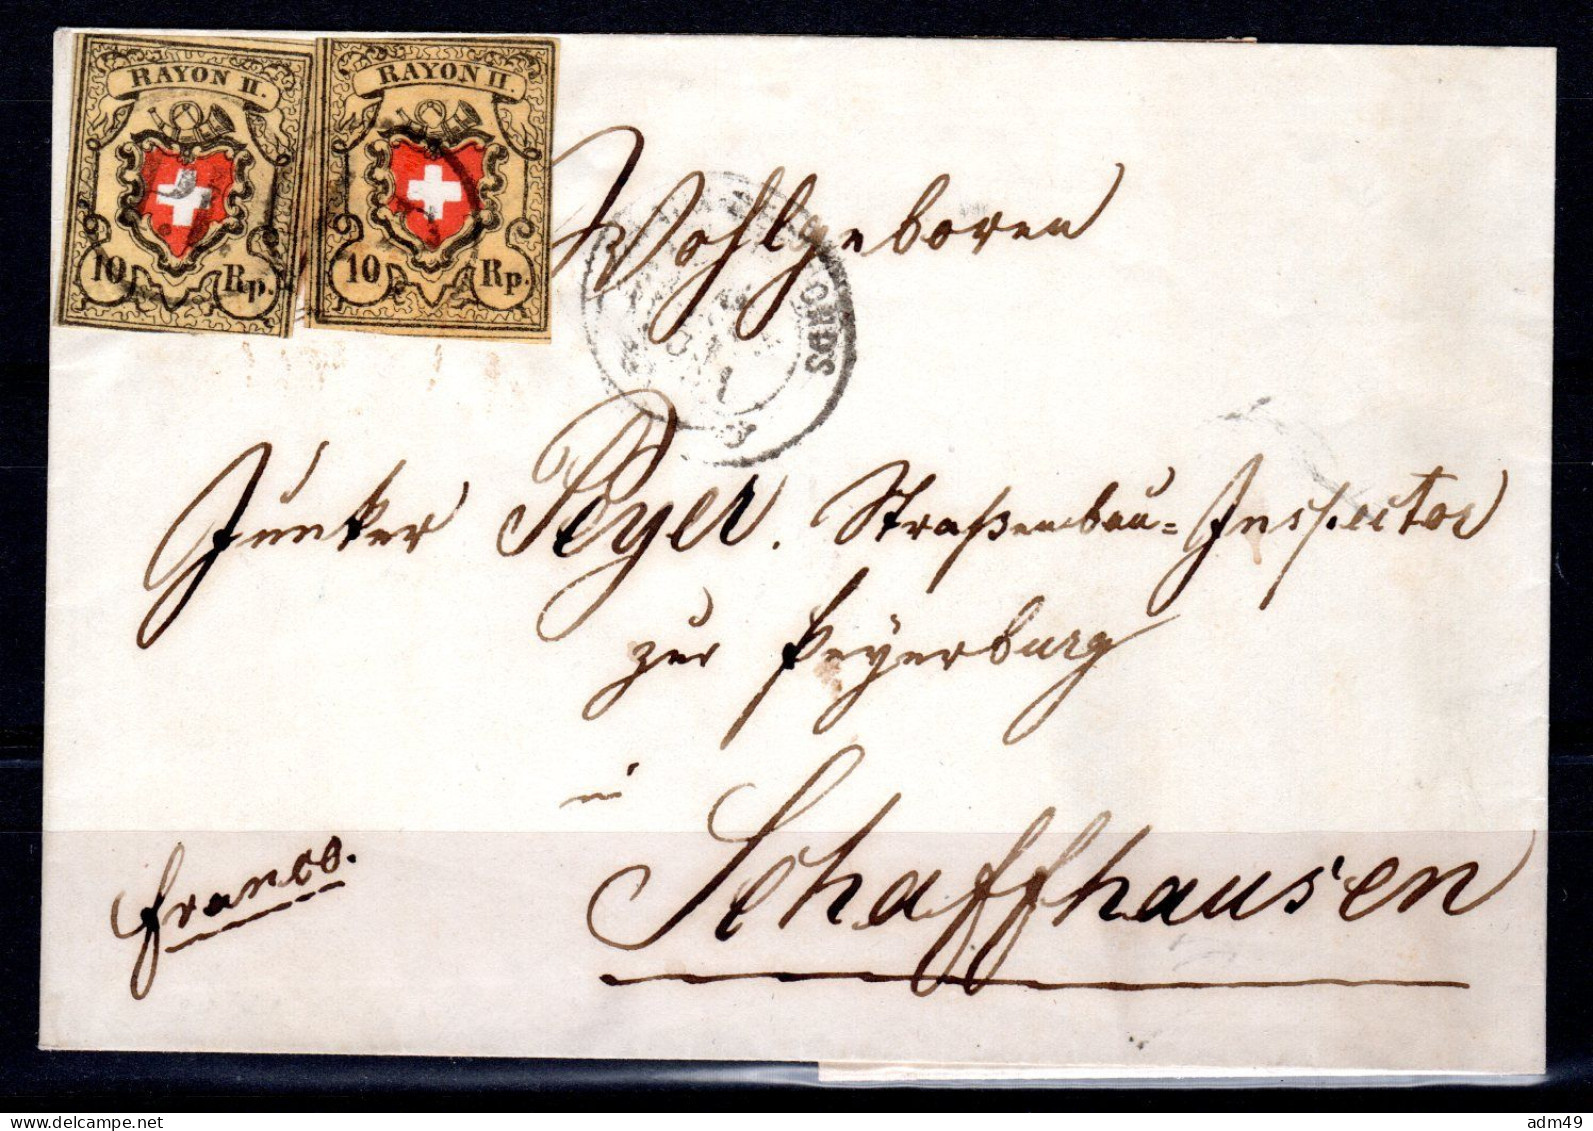 RAYON II.
10 Rp.
RAYON II.
10 Rp.
Wohlgeboren
FONDS
Junker Peyer. Straßenbau=Inspector
zur Peÿerburg
in
Schaffhausen
franco.
www.delcampe.net
adm49